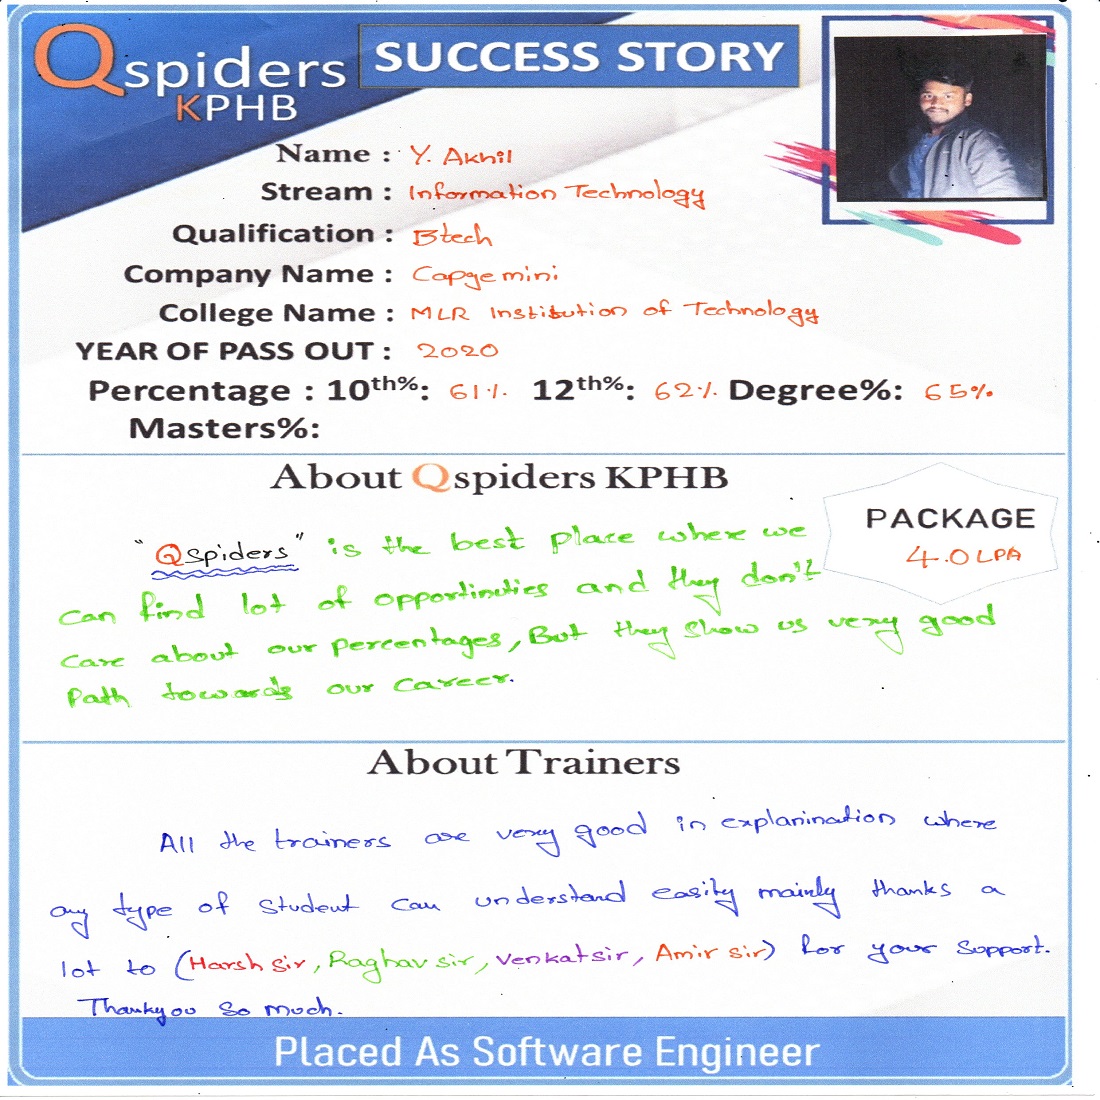 Qspiders
KPHB
SUCCESS STORY
Name : Y. Akhil
Stream : Information Technology
Qualification : Btech
Company Name : Capgemini
College Name : MLR Institution of Technology
YEAR OF PASS OUT : 2020
Percentage : 10th%: 61% 12th%: 62% Degree%: 65%
Masters%:
About Qspiders KPHB
PACKAGE
4.0 LPA
"Qspiders" is the best place where we
can find lot of opportinuties and they don't
care about our percentages, But they show us very good
Path towards our career.
About Trainers
All the trainers are very good in explanination where
any type of student can understand easily mainly thanks a
lot to (Harsh sir, Raghav sir, Venkat sir, Amir sir) for your support.
Thankyou so much.
Placed As Software Engineer